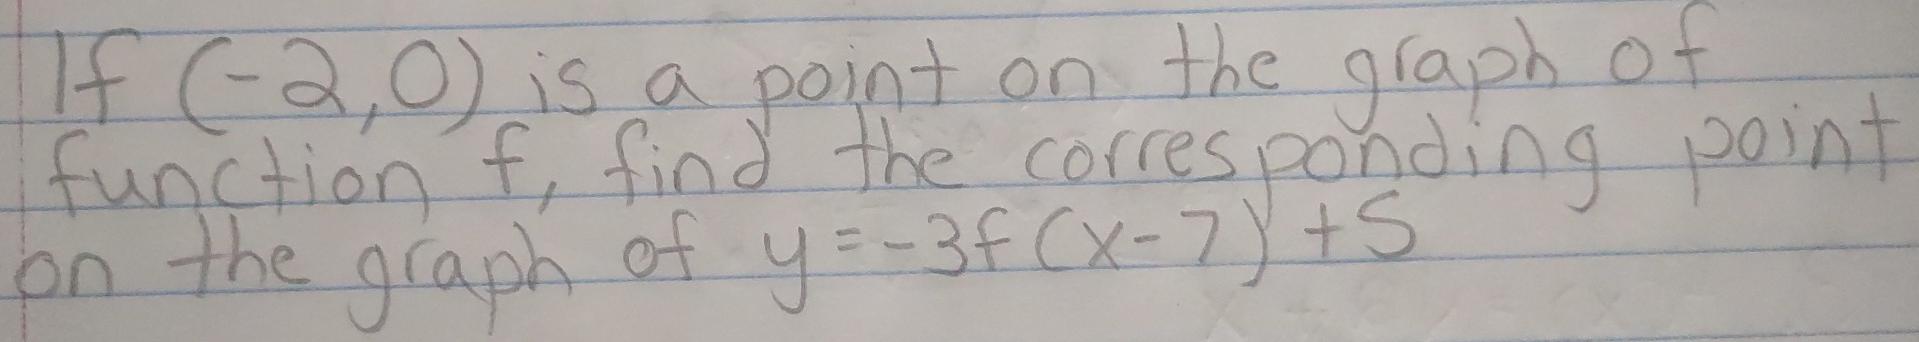 If (-2,0) is a point on the graph of
function f, find the corresponding point
on the graph of y=-3f(x-7)+5